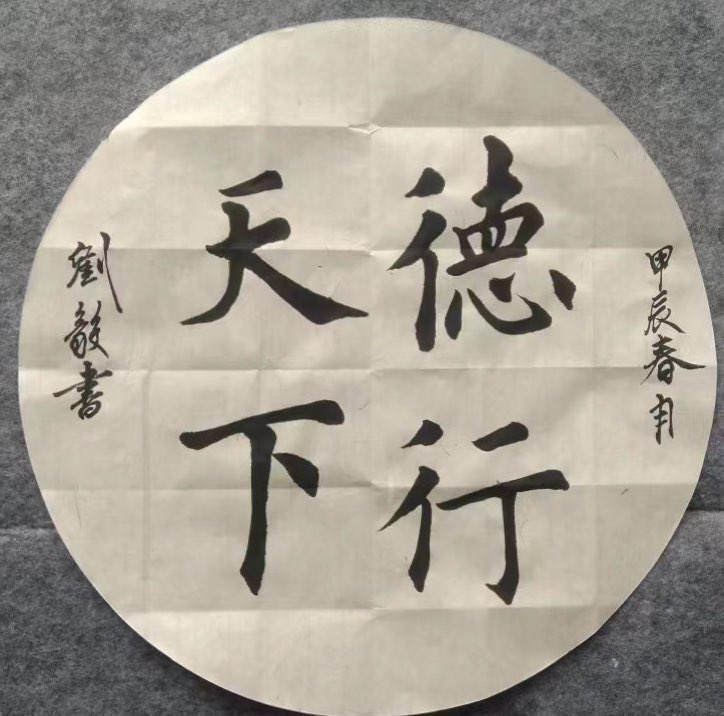 甲辰春月
德行
天下
劉毅書